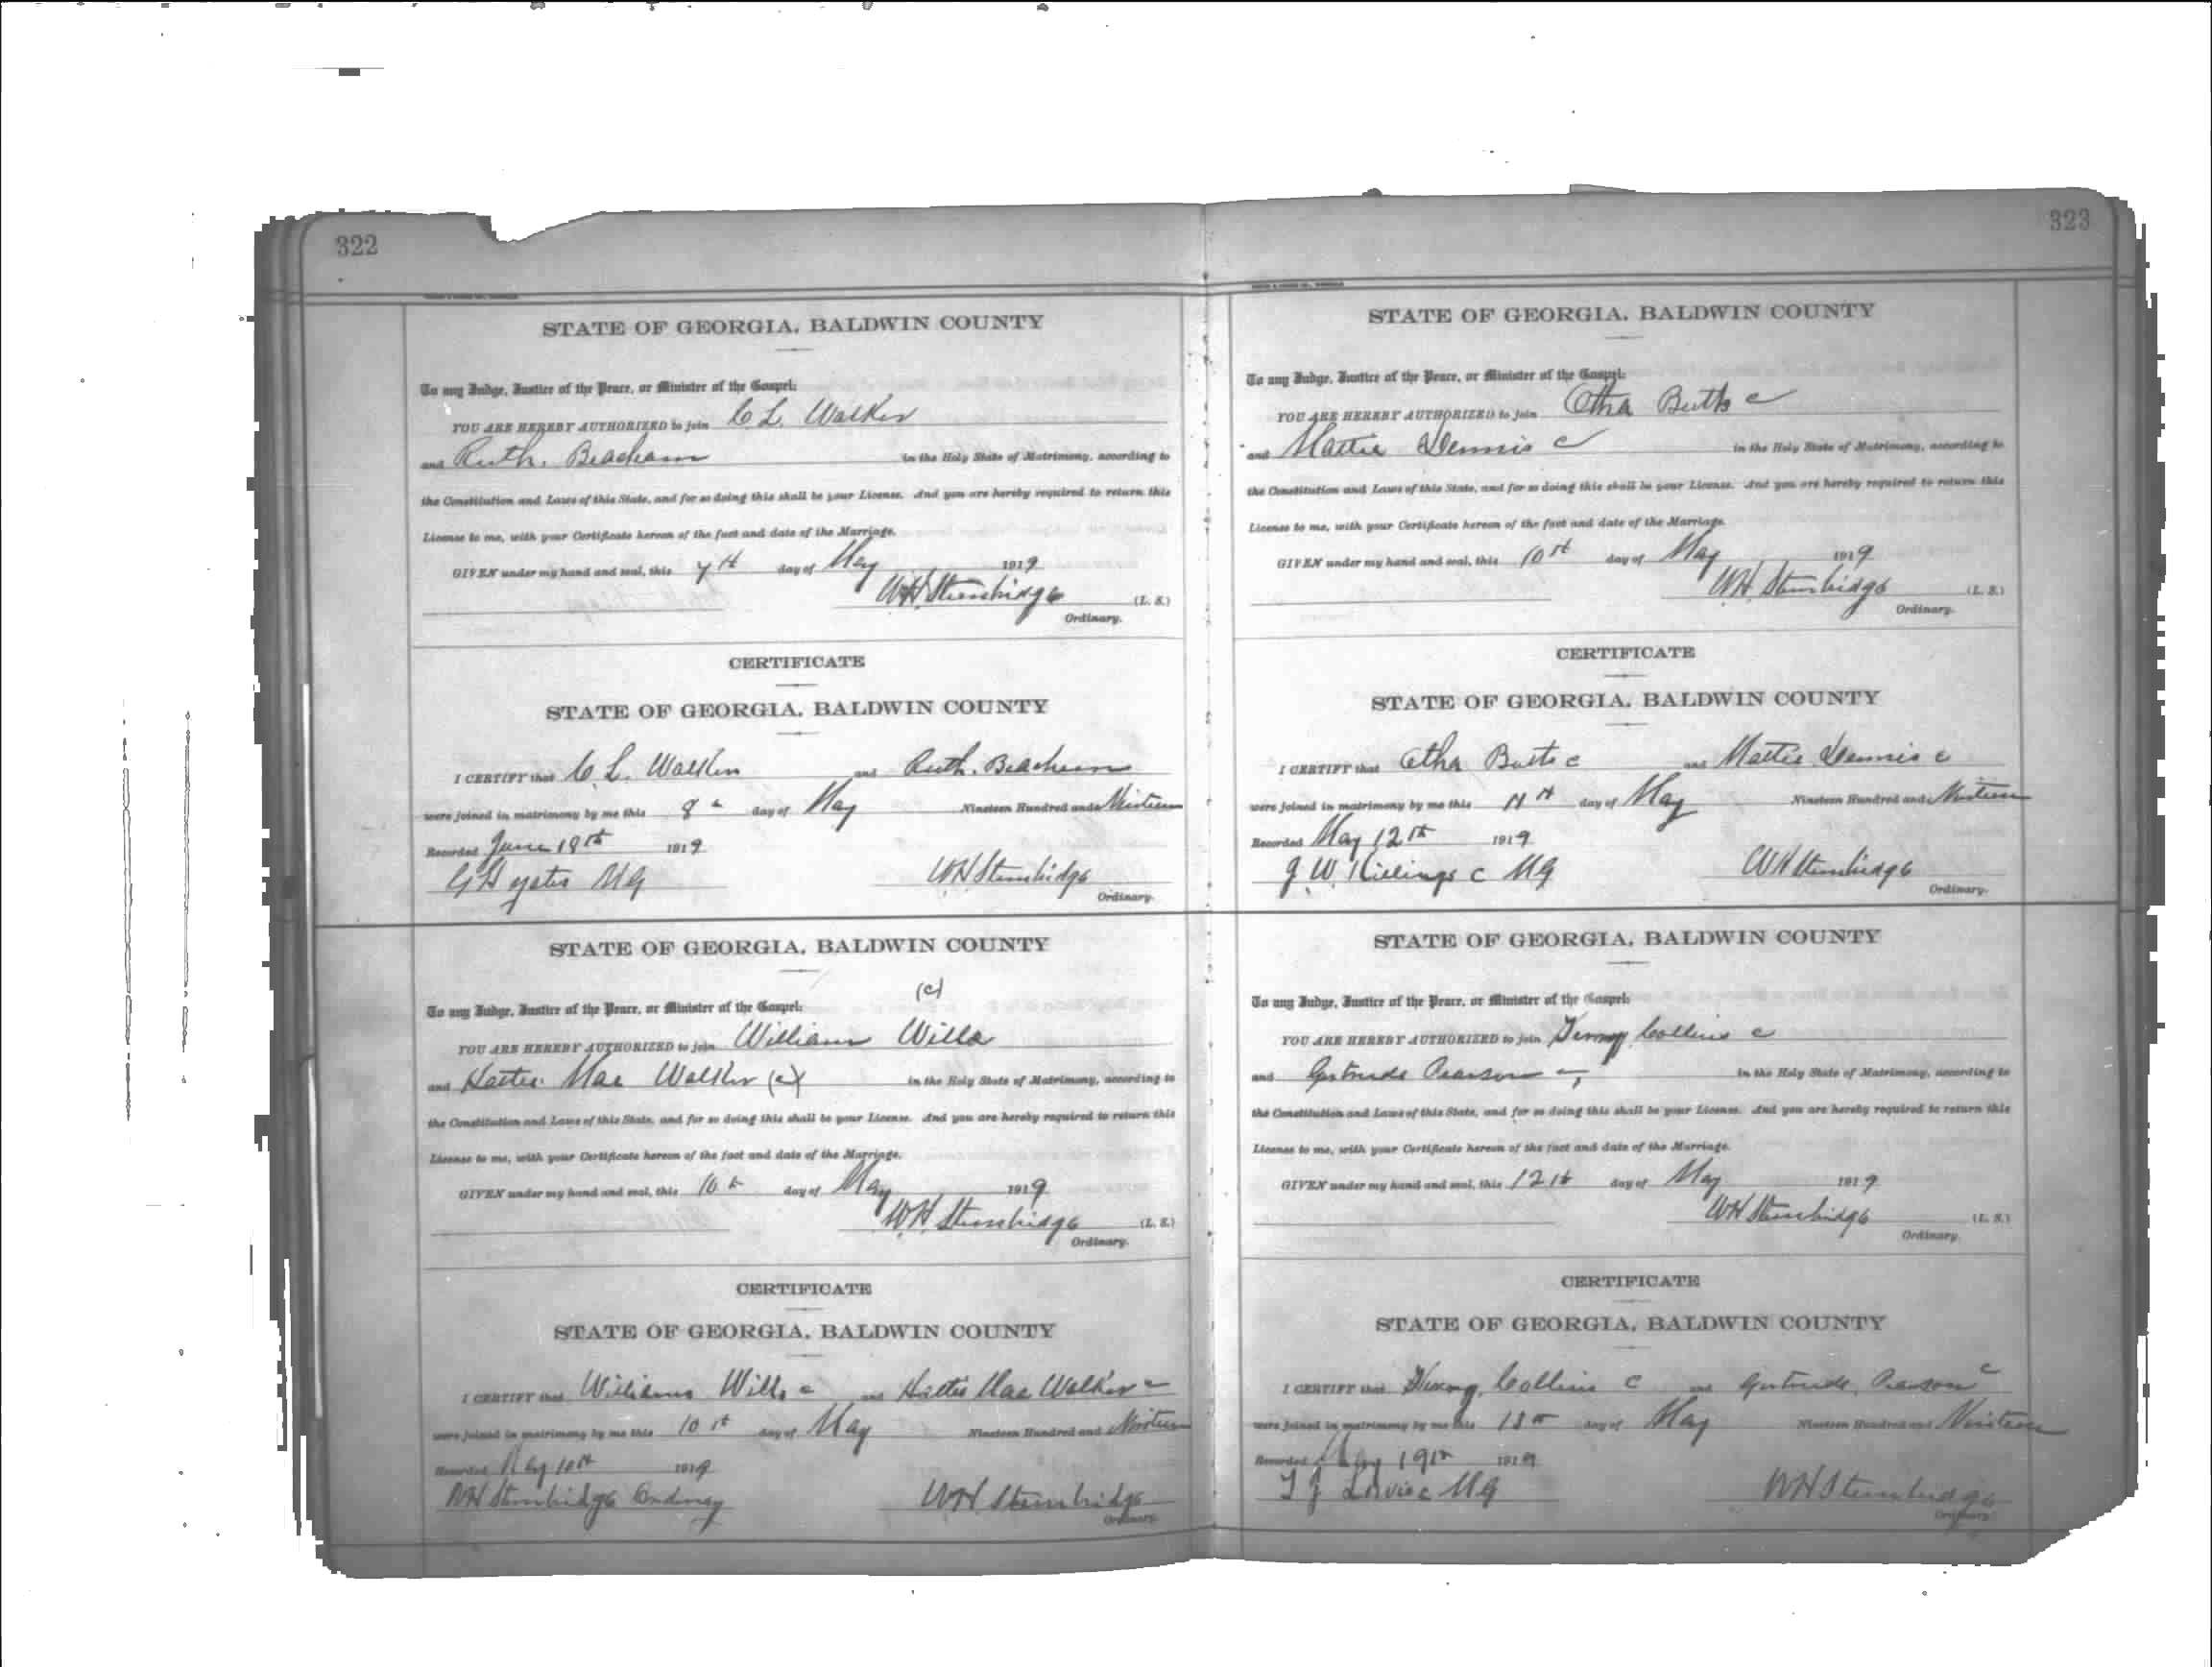 322
STATE OF GEORGIA, BALDWIN COUNTY
To any Judge, Justice of the Peace, or Minister of the Gospel:
YOU ARE HEREBY AUTHORIZED to join C L Walker
and Ruth. Beacham in the Holy State of Matrimony, according to
the Constitution and Laws of this State, and for so doing this shall be your License. And you are hereby required to return this
License to me, with your Certificate hereon of the fact and date of the Marriage.
GIVEN under my hand and seal, this 7th day of May 1919
WH Stembridge (L. S.)
Ordinary.
CERTIFICATE
STATE OF GEORGIA, BALDWIN COUNTY
I CERTIFY that C. L. Walker and Ruth. Beacham
were joined in matrimony by me this 8th day of May Nineteen Hundred and Nineteen
Recorded June 19th 1919
G H Yates MG WH Stembridge
Ordinary.
STATE OF GEORGIA, BALDWIN COUNTY
(c)
To any Judge, Justice of the Peace, or Minister of the Gospel:
YOU ARE HEREBY AUTHORIZED to join William Wills
and Hattie Mae Walker (c) in the Holy State of Matrimony, according to
the Constitution and Laws of this State, and for so doing this shall be your License. And you are hereby required to return this
License to me, with your Certificate hereon of the fact and date of the Marriage.
GIVEN under my hand and seal, this 10th day of May 1919
W.H. Stembridge (L. S.)
Ordinary.
CERTIFICATE
STATE OF GEORGIA, BALDWIN COUNTY
I CERTIFY that Williams Wills c and Hattie Mae Walker c
were joined in matrimony by me this 10th day of May Nineteen Hundred and Nineteen
Recorded May 10th 1919
WH Stembridge Ordinary WH Stembridge
Ordinary.
323
STATE OF GEORGIA, BALDWIN COUNTY
To any Judge, Justice of the Peace, or Minister of the Gospel:
YOU ARE HEREBY AUTHORIZED to join Otha Butts c
and Mattie Dennis c in the Holy State of Matrimony, according to
the Constitution and Laws of this State, and for so doing this shall be your License. And you are hereby required to return this
License to me, with your Certificate hereon of the fact and date of the Marriage.
GIVEN under my hand and seal, this 10th day of May 1919
W.H. Stembridge (L. S.)
Ordinary.
CERTIFICATE
STATE OF GEORGIA, BALDWIN COUNTY
I CERTIFY that Otha Butts c and Mattie Dennis c
were joined in matrimony by me this 11th day of May Nineteen Hundred and Nineteen
Recorded May 12th 1919
J. W. Killings c MG WH Stembridge
Ordinary.
STATE OF GEORGIA, BALDWIN COUNTY
To any Judge, Justice of the Peace, or Minister of the Gospel:
YOU ARE HEREBY AUTHORIZED to join Collins c
and Gertrude Pearson c in the Holy State of Matrimony, according to
the Constitution and Laws of this State, and for so doing this shall be your License. And you are hereby required to return this
License to me, with your Certificate hereon of the fact and date of the Marriage.
GIVEN under my hand and seal, this 12th day of May 1919
WH Stembridge (L. S.)
Ordinary.
CERTIFICATE
STATE OF GEORGIA, BALDWIN COUNTY
I CERTIFY that Collins c and Gertrude Pearson c
were joined in matrimony by me this 18th day of May Nineteen Hundred and Nineteen
Recorded May 19th 1919
T J c MG WH Stembridge
Ordinary.